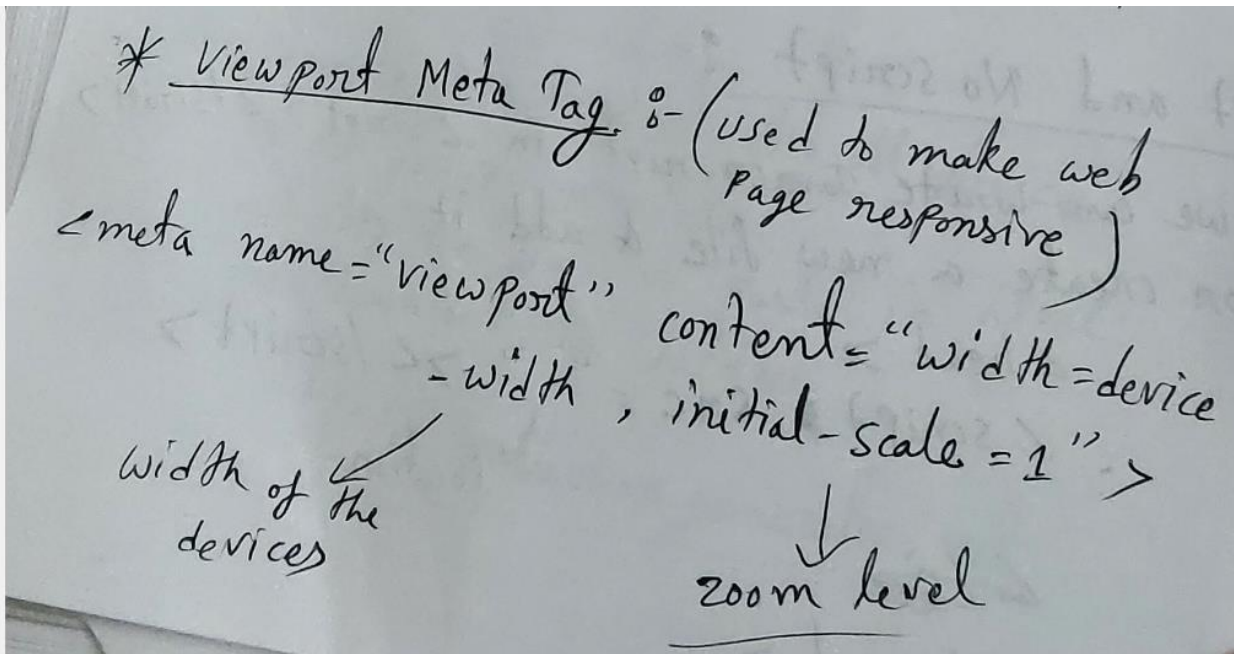 * Viewport Meta Tag :- (used to make web
page responsive)
<meta name="viewport" content="width=device
-width, initial-scale=1">
width of the
devices
zoom level